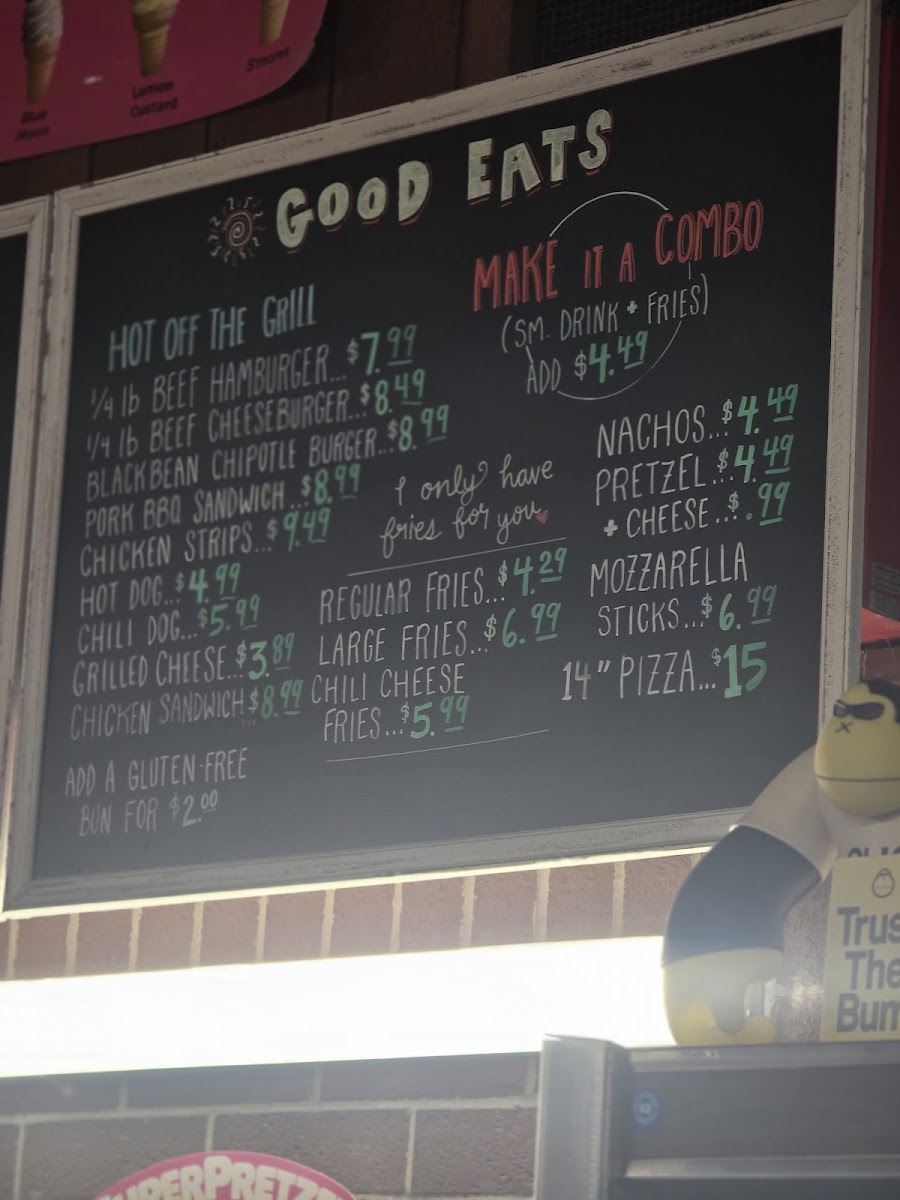 Blue
Moon
Lemon
Custard
S'mores
GOOD EATS
HOT OFF THE GRILL
1/4 lb BEEF HAMBURGER...$7.99
1/4 lb BEEF CHEESEBURGER...$8.49
BLACKBEAN CHIPOTLE BURGER...$8.99
PORK BBQ SANDWICH...$8.99
CHICKEN STRIPS...$9.49
HOT DOG...$4.99
CHILI DOG...$5.99
GRILLED CHEESE...$3.89
CHICKEN SANDWICH...$8.99
ADD A GLUTEN-FREE
BUN FOR $2.00
MAKE IT A COMBO
(SM. DRINK + FRIES)
ADD $4.49
I only have
fries for you
REGULAR FRIES...$4.29
LARGE FRIES...$6.99
CHILI CHEESE
FRIES...$5.99
NACHOS...$4.49
PRETZEL...$4.49
+ CHEESE...$.99
MOZZARELLA
STICKS...$6.99
14" PIZZA...$15
Trus
The
Bum
SUPERPRETZE